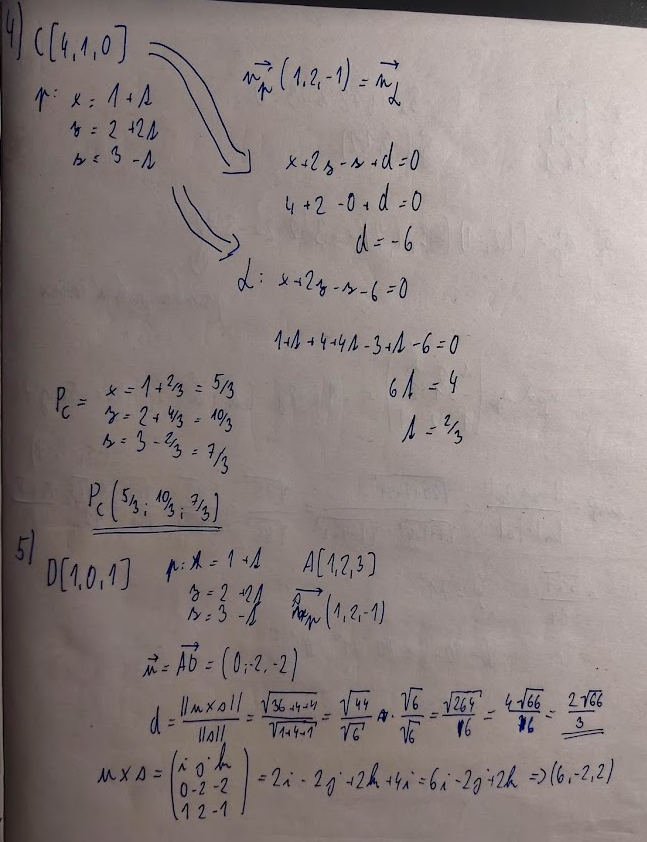 4) C[4,1,0]
p: x = 1 + s
y = 2 + 2s
z = 3 - s
n⃗p (1,2,-1) = n⃗α
x + 2y - z + d = 0
4 + 2 - 0 + d = 0
d = -6
α: x + 2y - z - 6 = 0
1 + s + 4 + 4s - 3 + s - 6 = 0
6s = 4
s = 2/3
Pc = x = 1 + 2/3 = 5/3
y = 2 + 4/3 = 10/3
z = 3 - 2/3 = 7/3
Pc (5/3; 10/3; 7/3)
5) D[1,0,1] p: x = 1 + s A[1,2,3]
y = 2 + 2s
z = 3 - s (1,2,-1)
u⃗ = AD⃗ = (0,-2,-2)
d = ||u×s|| / ||s|| = √36+4+4 / √1+4+1 = √44 / √6 · √6 / √6 = √264 / 6 = 4√66 / 6 = 2√66 / 3
u×s = (i j k
0 -2 -2
1 2 -1) = 2i - 2j + 2k + 4i = 6i - 2j + 2k => (6,-2,2)